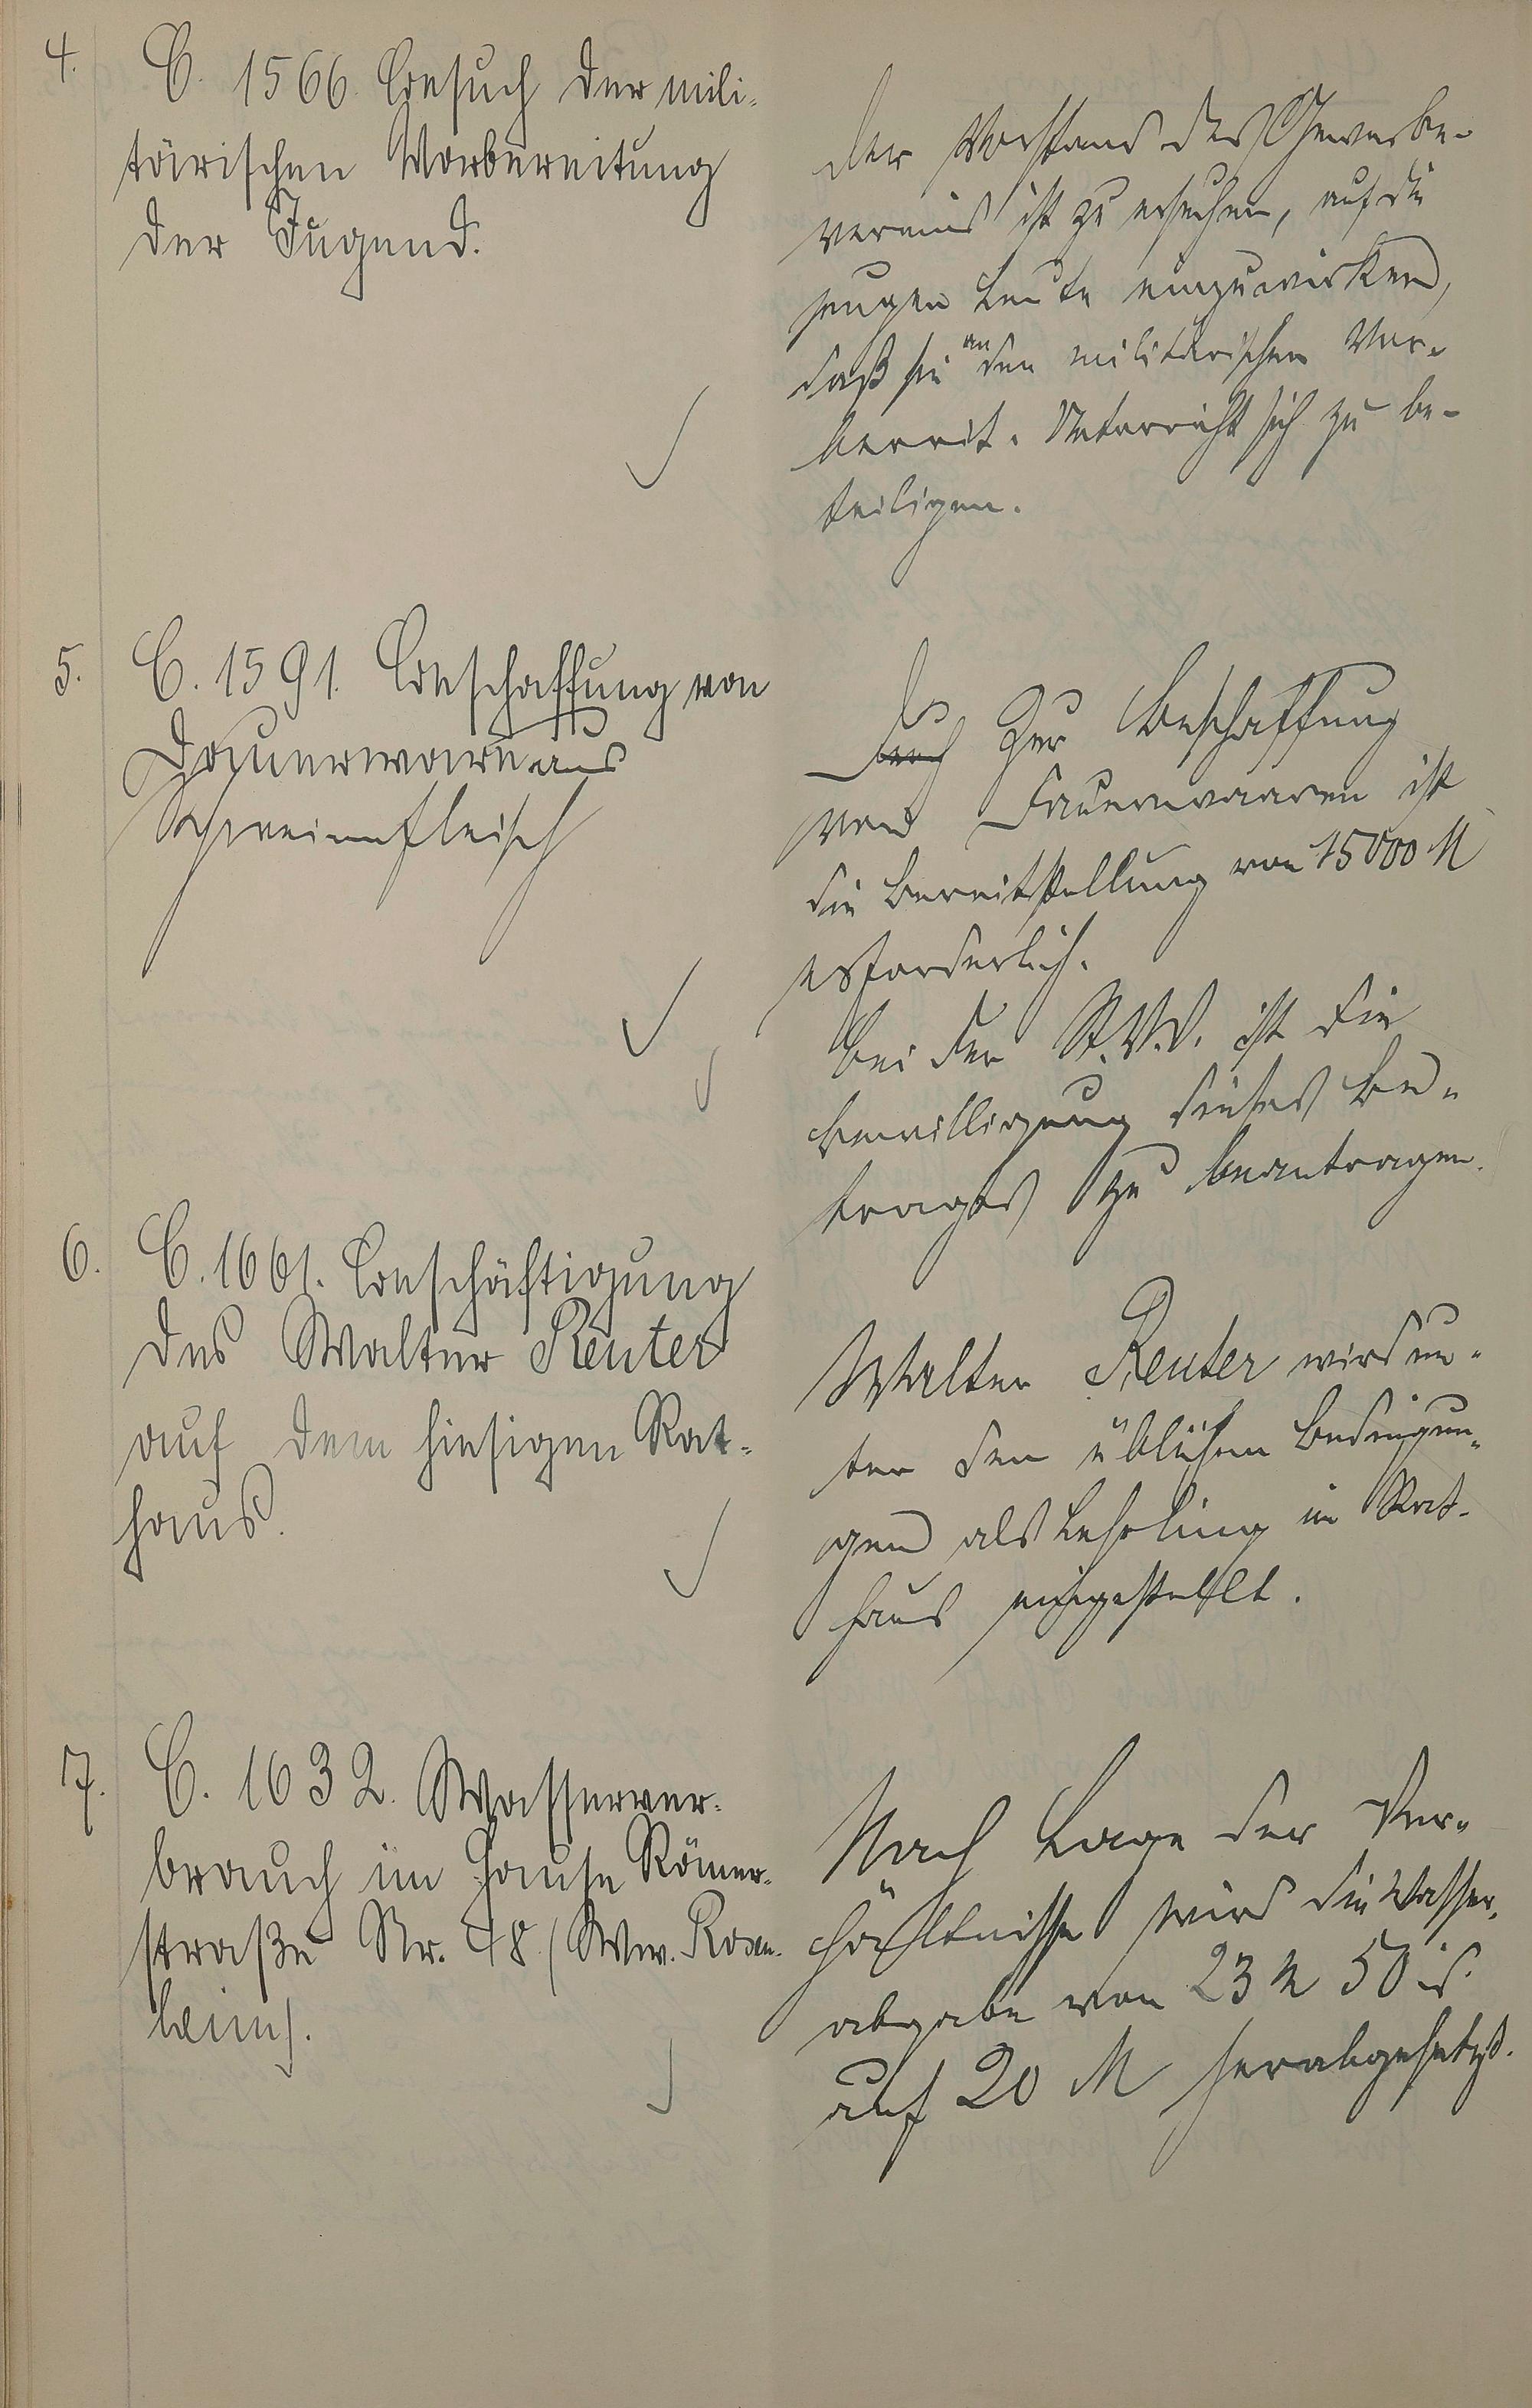 4.
C. 1566. Besuch der mili-
tärischen Vorbereitung
der Jugend.
Der Vorstand des Gewerbe-
vereins ist zu ersuchen, auf die
jungen Leute einzuwirken,
daß sie an den militärischen Vor-
bereit. Unterricht sich zu be-
teiligen.
5.
C. 1591. Beschaffung von
Dauerware aus
Schweinefleisch
Zur Beschaffung
von Dauerwaaren ist
die Bereitstellung von 15000 M
erforderlich.
Bei der St.V.V. ist die
Bewilligung dieses Be-
trages zu beantragen.
6.
C. 1661. Beschäftigung
des Walter Reuter
auf dem hiesigen Rat-
haus.
Walter Reuter wird un-
ter den üblichen Bedingun-
gen als Lehrling im Rat-
haus eingestellt.
7.
C. 1632. Wasserver-
brauch im Hause Römer-
straße Nr. 48 (Ww. Rosen-
heim).
Nach Lage der Ver-
hältnisse wird die Wasser-
abgabe von 23 M 50
auf 20 M herabgesetzt.